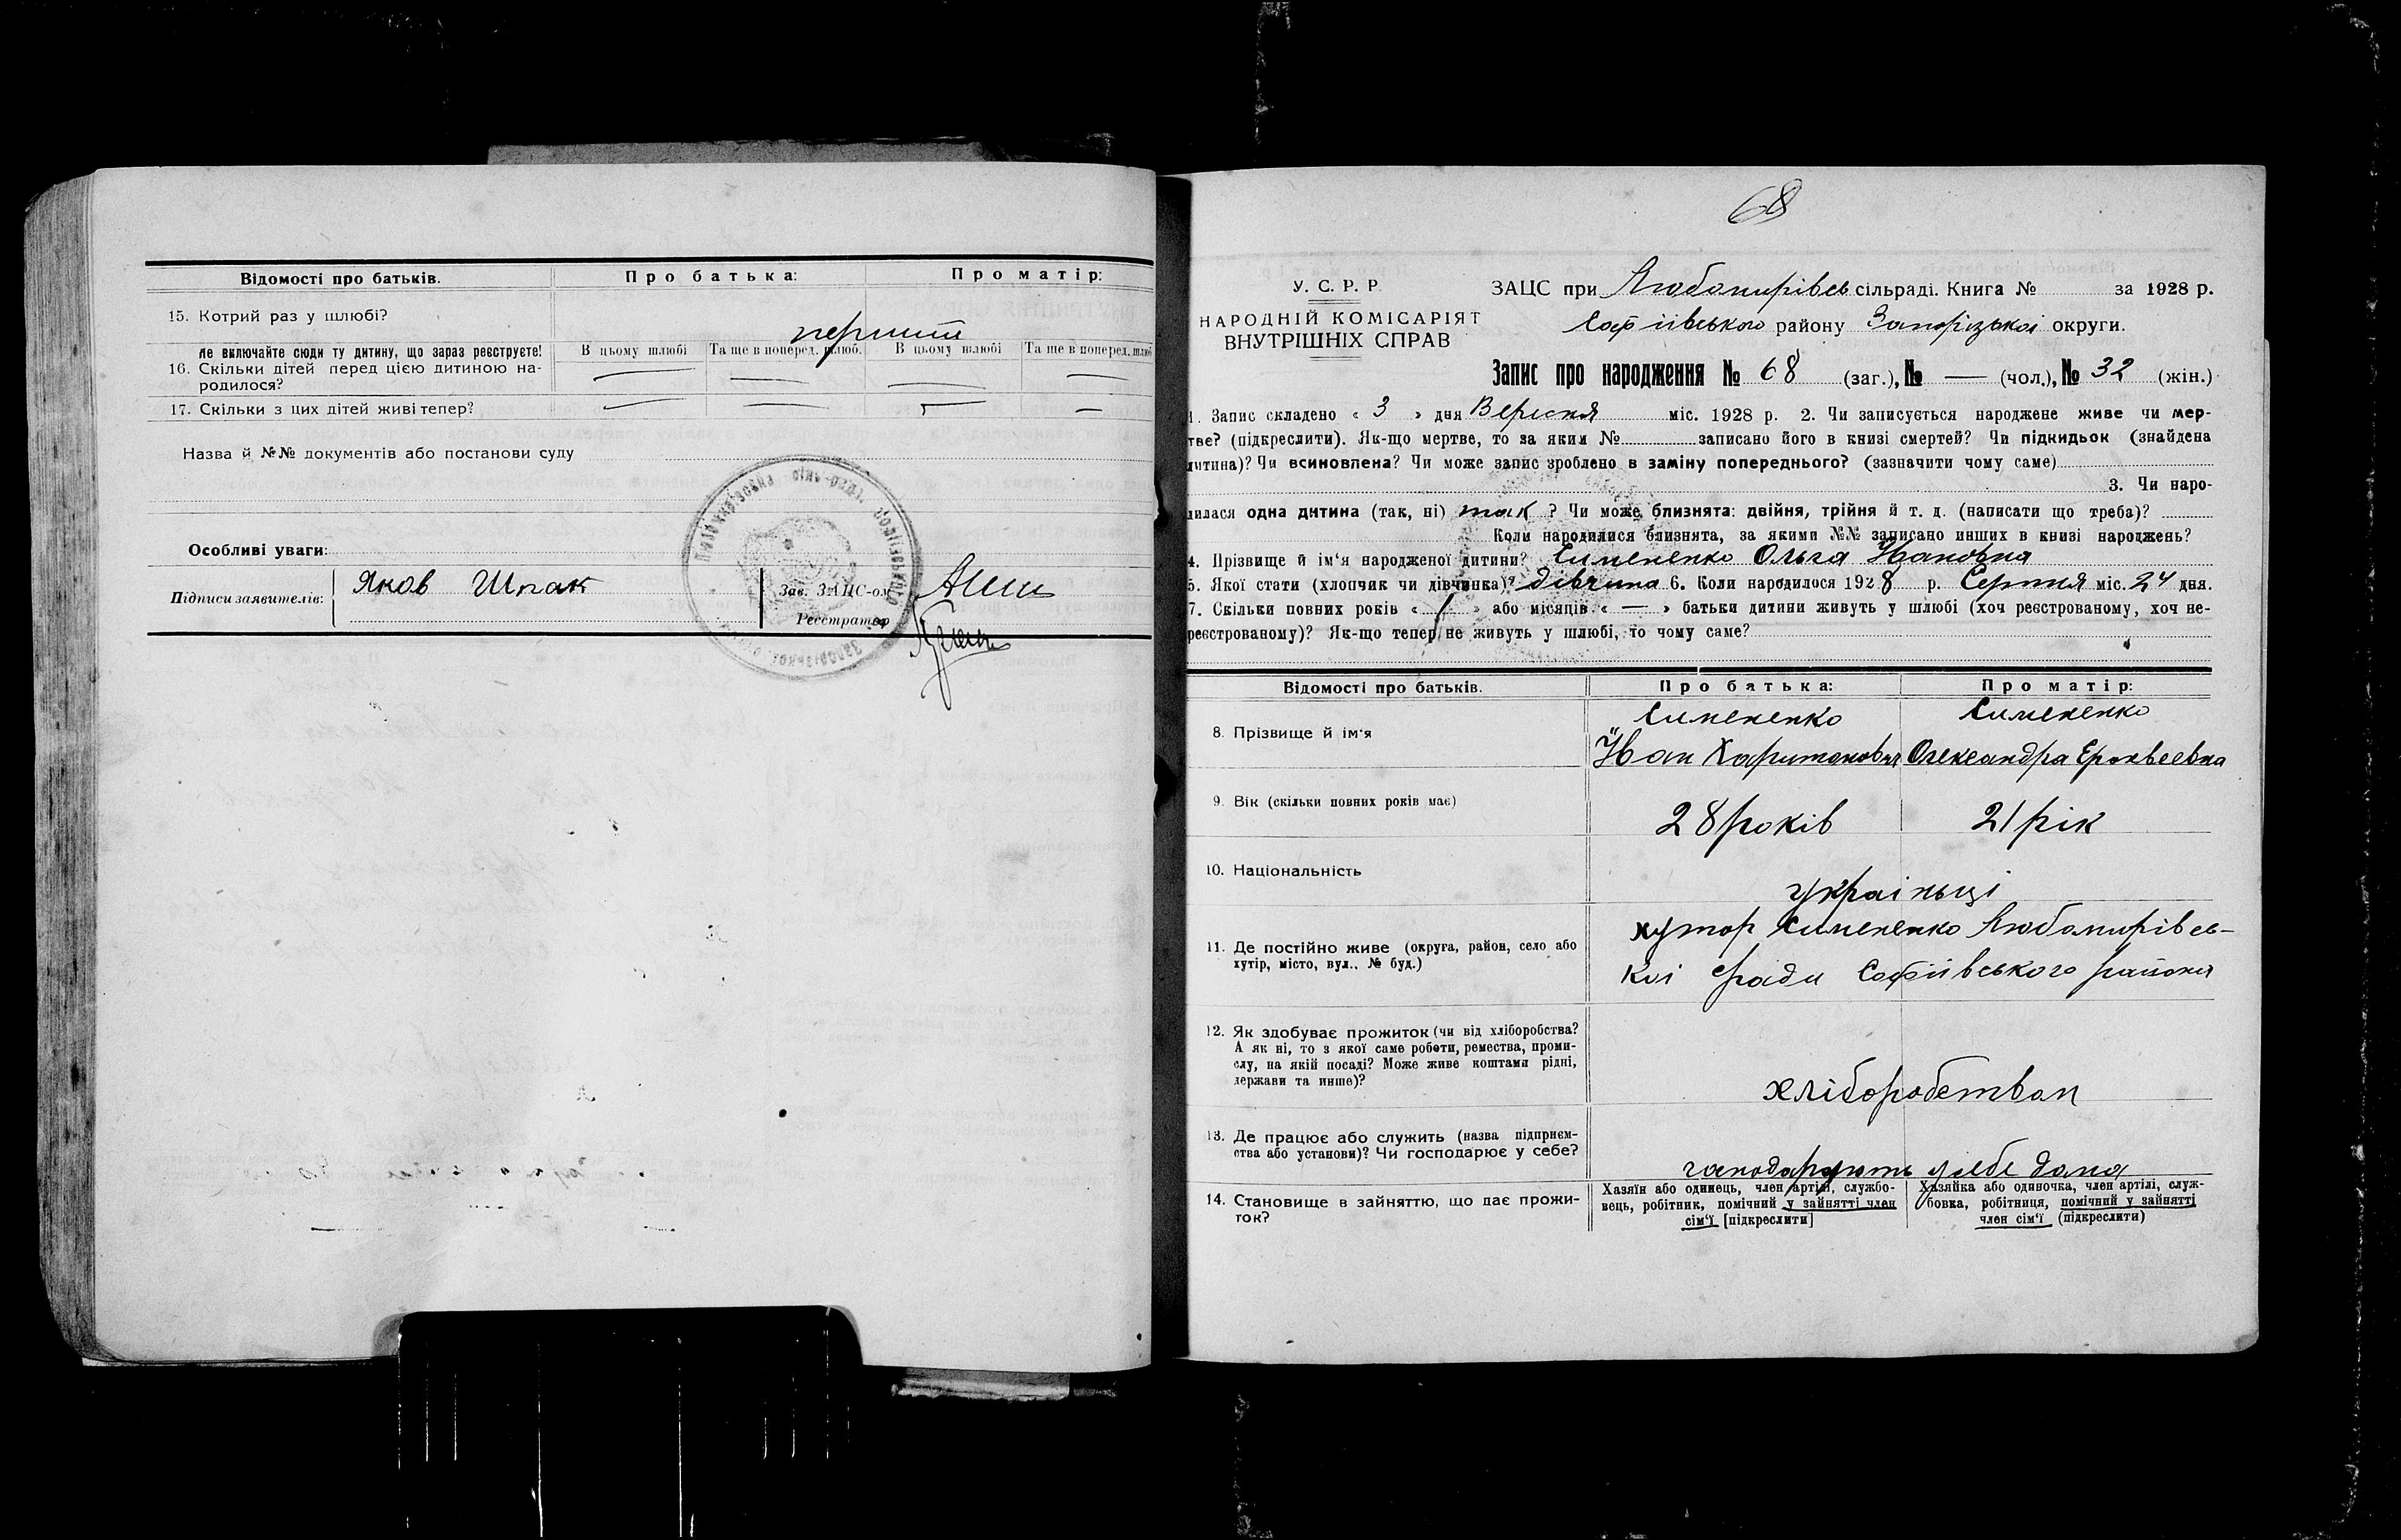 Відомості про батьків. Про батька: Про матір:
15. Котрий раз у шлюбі?
перший
Не включайте сюди ту дитину, що зараз реєструєте! В цьому шлюбі Та ще в поперед. шлюб. В цьому шлюбі Та ще в поперед. шлюб
16. Скільки дітей перед цією дитиною на-
родилося? — — — —
17. Скільки з цих дітей живі тепер? — — — —
Назва й №№ документів або постанови суду
Особливі уваги:
Підписи заявителів: Яков Шпак
Зав. ЗАЦС-ом
Реєстратор
68
У. С. Р. Р.
НАРОДНІЙ КОМІСАРІЯТ
ВНУТРІШНІХ СПРАВ
ЗАЦС при Любомирівсь сільраді. Книга № за 1928 р.
Софіівського району Запорізькоі округи.
Запис про народження № 68 (заг.), № — (чол.), № 32 (жін.)
1. Запис складено « 3 » дня Вересня міс. 1928 р. 2. Чи записується народжене живе чи мер-
тве? (підкреслити). Як-що мертве, то за яким № записано його в книзі смертей? Чи підкидьок (знайдена
дитина)? Чи всиновлена? Чи може запис зроблено в заміну попереднього? (зазначити чому саме)
3. Чи наро-
дилася одна дитина (так, ні) так ? Чи може близнята: двійня, трійня й т. д. (написати що треба)?
Коли народилися близнята, за якими №№ записано инших в книзі народжень?
4. Прізвище й ім‘я народженої дитини? Симененко Ольга Івановна
5. Якої статі (хлопчик чи дівчинка)? дівчина 6. Коли народилося 1928 р. Серпня міс. 24 дня.
7. Скільки повних років « 1 » або місяців « — » батьки дитини живуть у шлюбі (хоч реєстрованому, хоч не-
реєстрованому)? Як-що тепер не живуть у шлюбі, то чому саме?
Відомості про батьків. Про батька: Про матір:
8. Прізвище й ім‘я
Симененко Симененко
Іван Харитонович Олександра
9. Вік (скільки повних років має)
28 років 21 рік
10. Національність
украіньці
11. Де постійно живе (округа, район, село або
хутір, місто, вул., № буд.)
хутор Симененко Любомирівсь-
коі ради Софіівського района
12. Як здобуває прожиток (чи від хліборобства?
А як ні, то з якої саме роботи, ремества, проми-
слу, на якій посаді? Може живе коштами рідні,
держави та инше)?
хліборобством
13. Де працює або служить (назва підприєм-
ства або установи)? Чи господарює у себе?
господарують у себе дома
14. Становище в зайняттю, що дає прожи-
ток?
Хазяїн або одинець, член артілі, службо-
вець, робітник, помічний у зайнятті член
сім‘ї [підкреслити]
Хазяйка або одиночка, член артілі, служ-
бовка, робітниця, помічний у зайнятті
член сім‘ї (підкреслити)